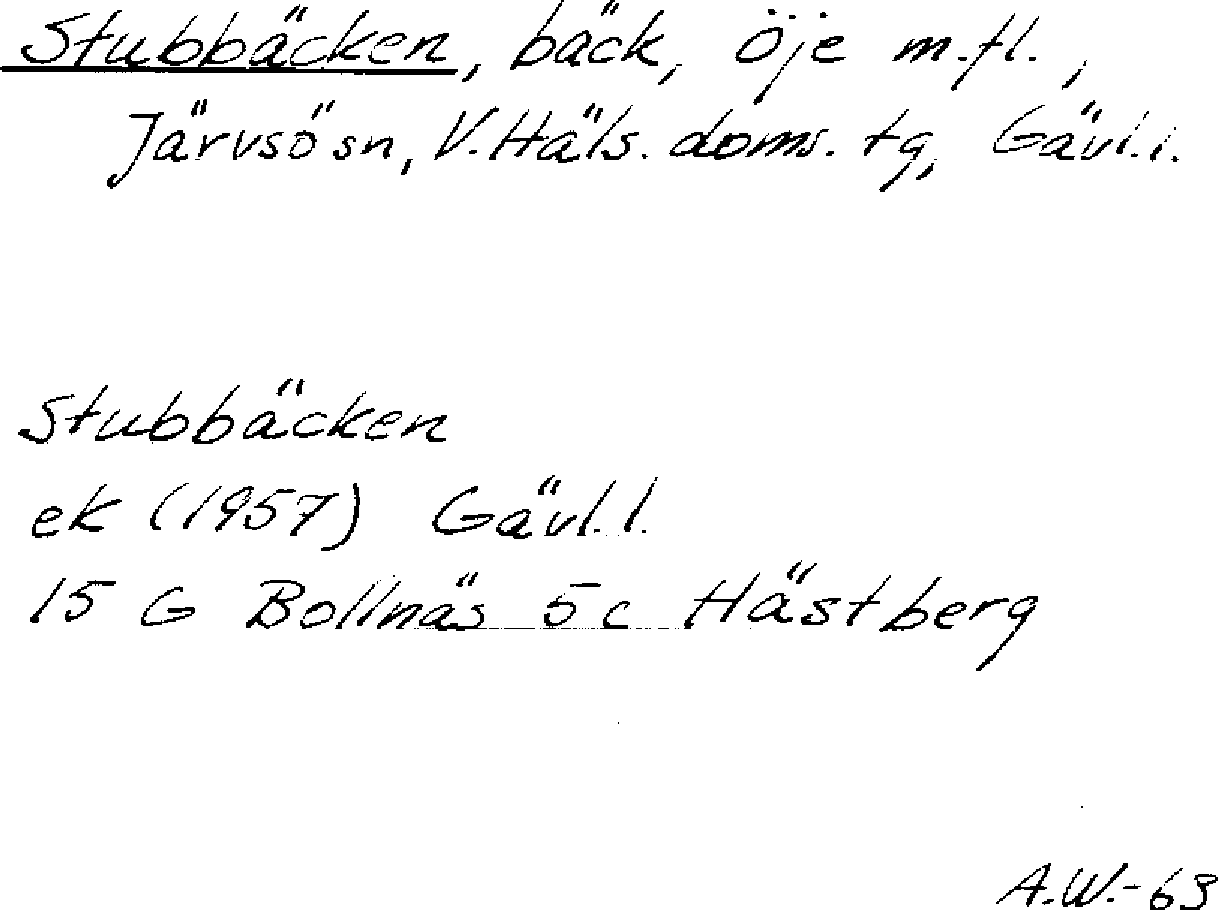 Stubbäcken, bäck, Öje m.fl.,
Järvsö sn, V. Häls. doms. tg, Gävl.l.
Stubbäcken
ek (1957) Gävl.l.
15 G Bollnäs 5c Hästberg
A.W.-63